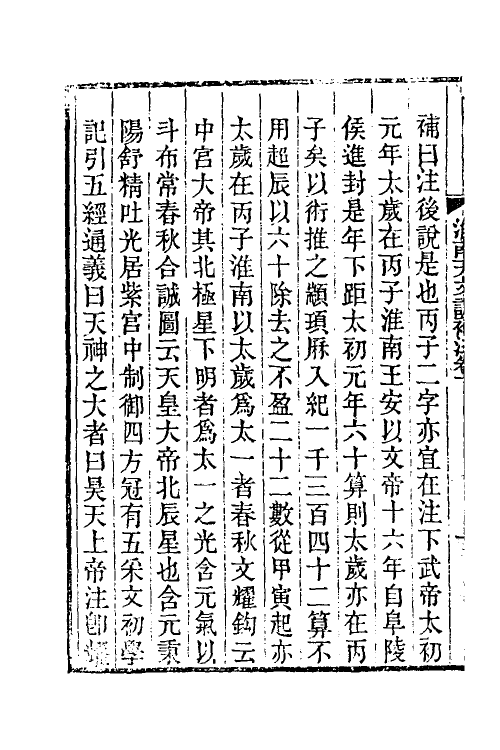 補曰注後說是也丙子二字亦宜在注下武帝太初
元年太歲在丙子淮南王安以文帝十六年自阜陵
侯進封是年下距太初元年六十算則太歲亦在丙
子矣以術推之顓頊厤入紀一千三百四十二算不
用超辰以六十除去之不盈二十二數從甲寅起亦
太歲在丙子淮南以太歲爲太一者春秋文耀鈎云
中宮大帝其北極星下明者爲太一之光含元氣以
斗布常春秋合誠圖云天皇大帝北辰星也含元秉
陽舒精吐光居紫宮中制御四方冠有五采文初學
記引五經通義曰天神之大者曰昊天上帝注卽耀
淮南天文訓補注卷